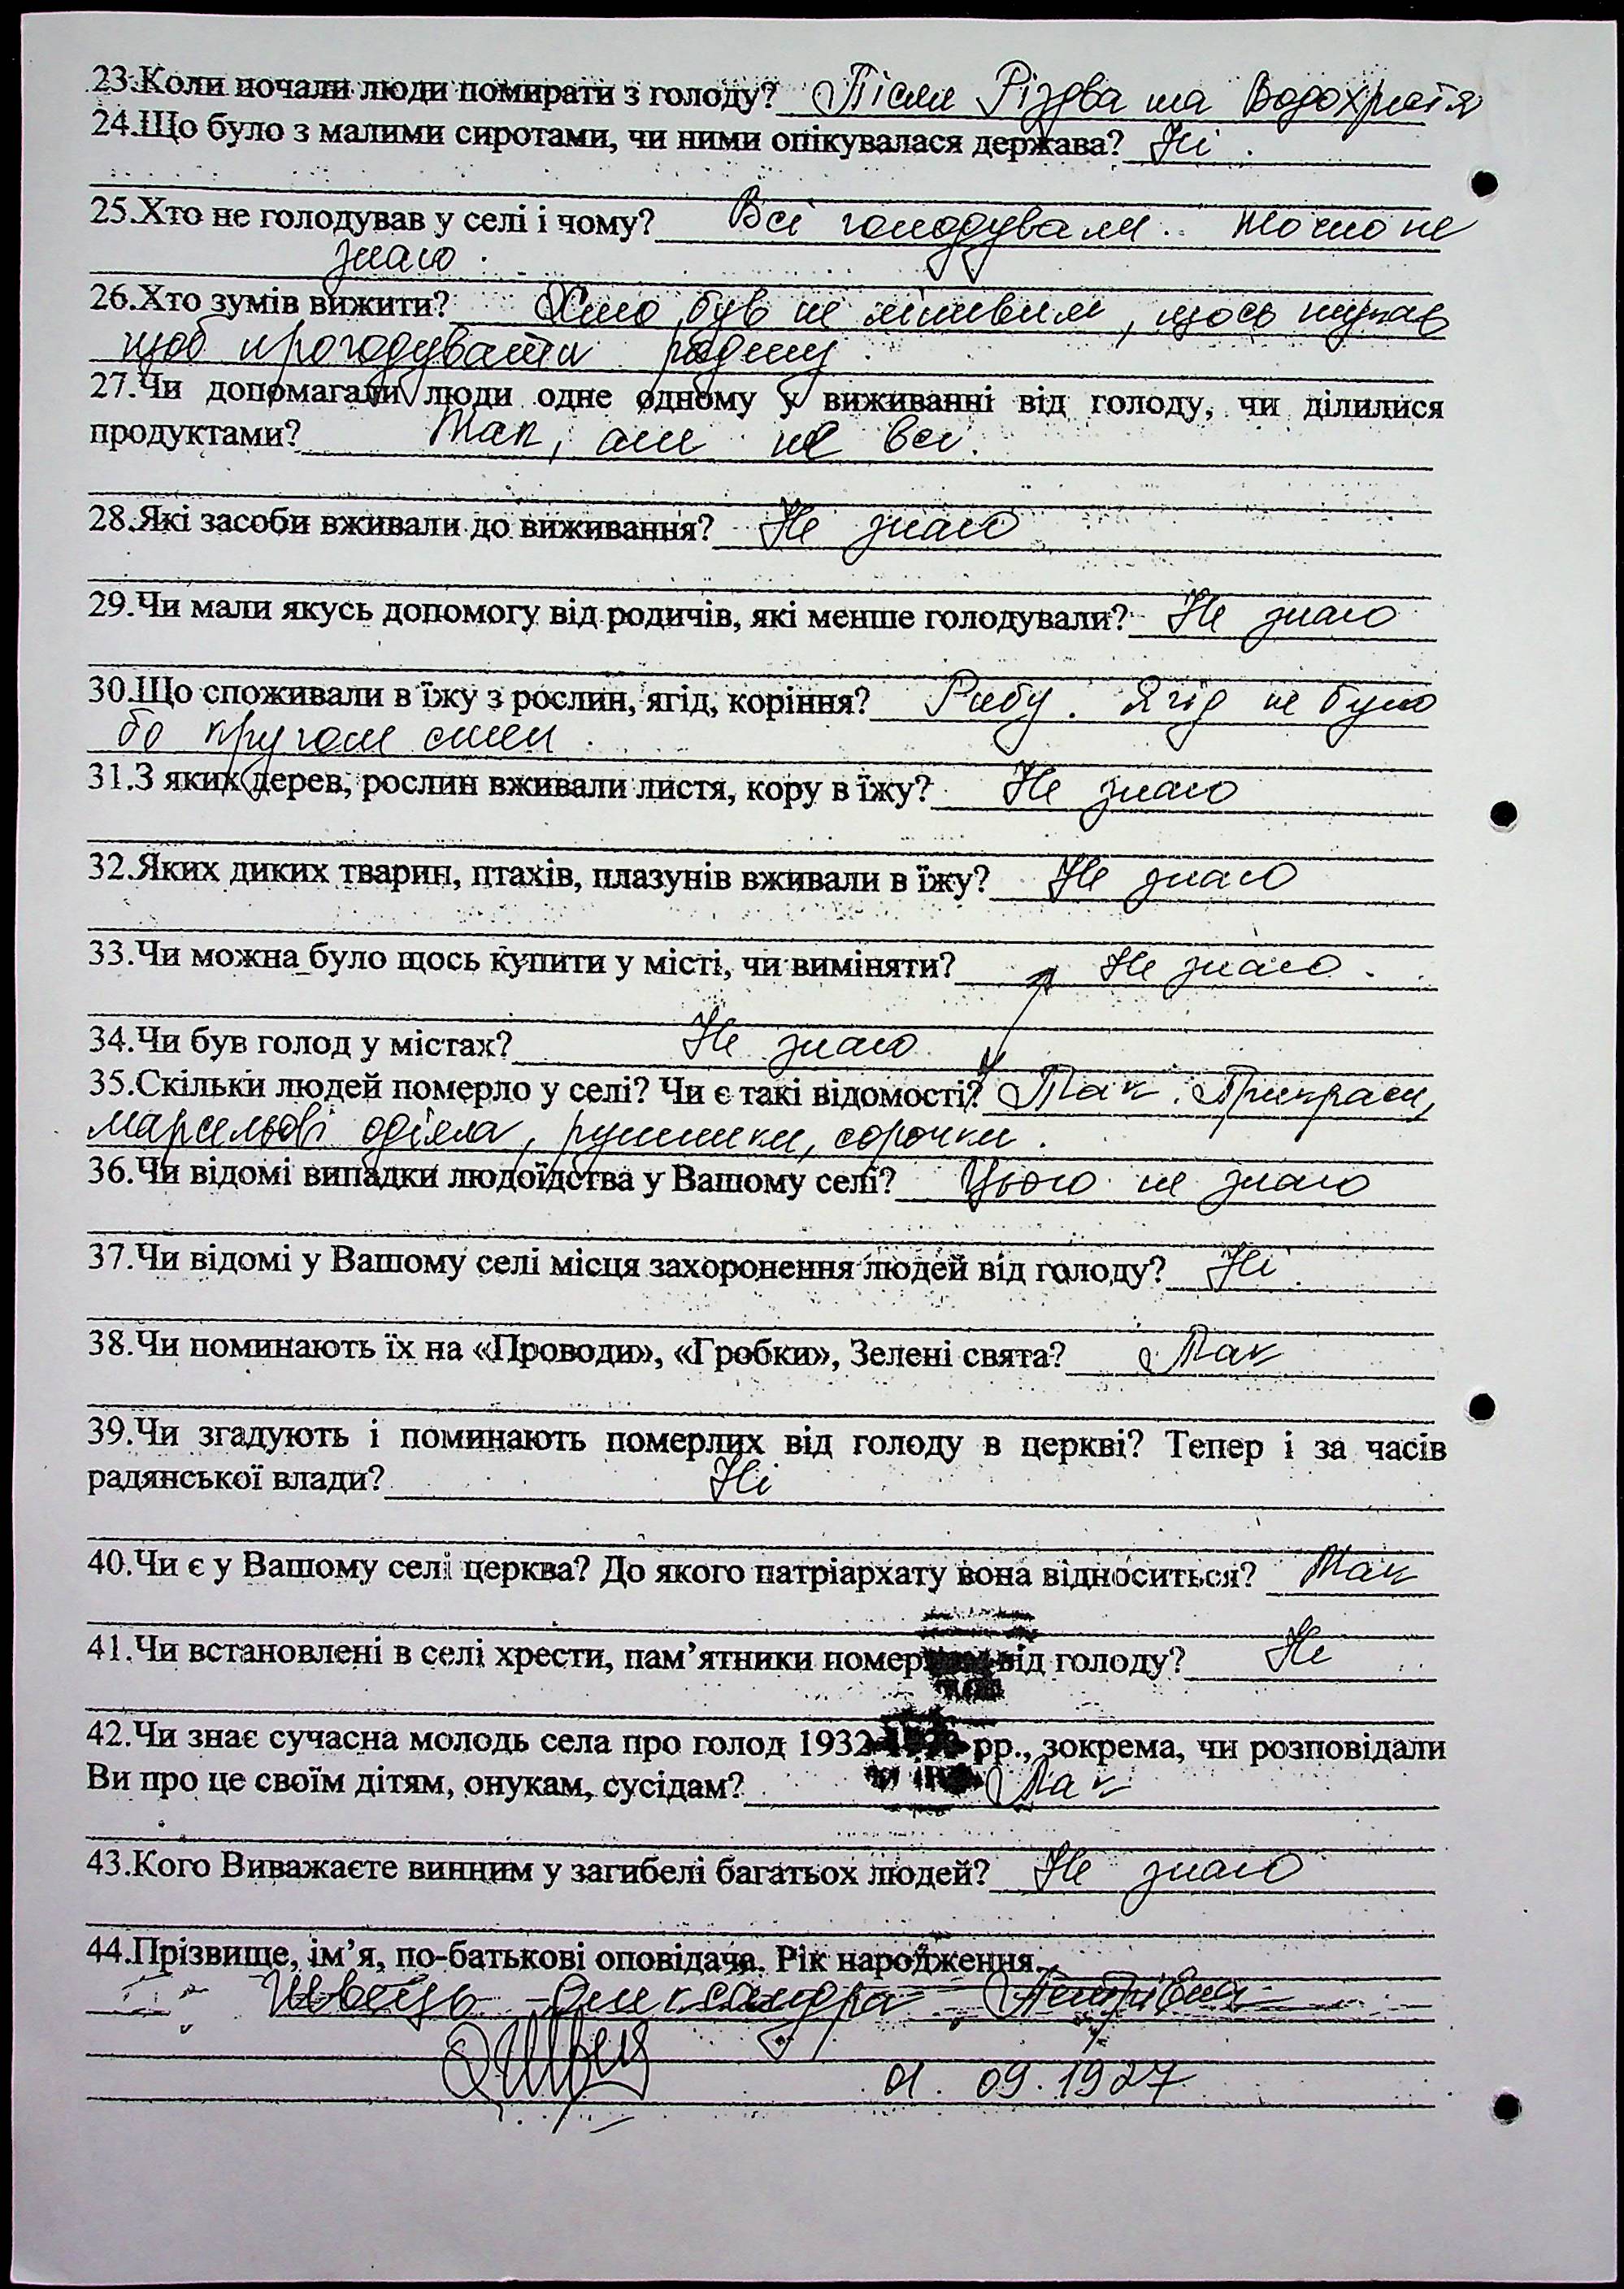 23.Коли почали люди помирати з голоду? Після Різдва та Водохрестя
24.Що було з малими сиротами, чи ними опікувалася держава? Ні.
25.Хто не голодував у селі і чому? Всі голодували. Точно не
знаю.
26.Хто зумів вижити? Хто був не лінивим, щось шукав
щоб прогодувати родину.
27.Чи допомагали люди одне одному у виживанні від голоду, чи ділилися
продуктами? Так, але не всі.
28.Які засоби вживали до виживання? Не знаю
29.Чи мали якусь допомогу від родичів, які менше голодували? Не знаю
30.Що споживали в їжу з рослин, ягід, коріння? Рибу. Ягід не було
бо кругом степ.
31.З яких дерев, рослин вживали листя, кору в їжу? Не знаю
32.Яких диких тварин, птахів, плазунів вживали в їжу? Не знаю
33.Чи можна було щось купити у місті, чи виміняти? Не знаю.
34.Чи був голод у містах? Не знаю
35.Скільки людей померло у селі? Чи є такі відомості? Так. Прикраси,
одіяла, рушники, сорочки.
36.Чи відомі випадки людоїдства у Вашому селі? Цього не знаю
37.Чи відомі у Вашому селі місця захоронення людей від голоду? Ні.
38.Чи поминають їх на «Проводи», «Гробки», Зелені свята? Так
39.Чи згадують і поминають померлих від голоду в церкві? Тепер і за часів
радянської влади? Ні
40.Чи є у Вашому селі церква? До якого патріархату вона відноситься? Так
41.Чи встановлені в селі хрести, пам’ятники від голоду? Ні
42.Чи знає сучасна молодь села про голод 1932 рр., зокрема, чи розповідали
Ви про це своїм дітям, онукам, сусідам? Так
43.Кого Виважаєте винним у загибелі багатьох людей? Не знаю
44.Прізвище, ім’я, по-батькові оповідача. Рік народження.
Швець Олександра Петрівна
01.09.1927